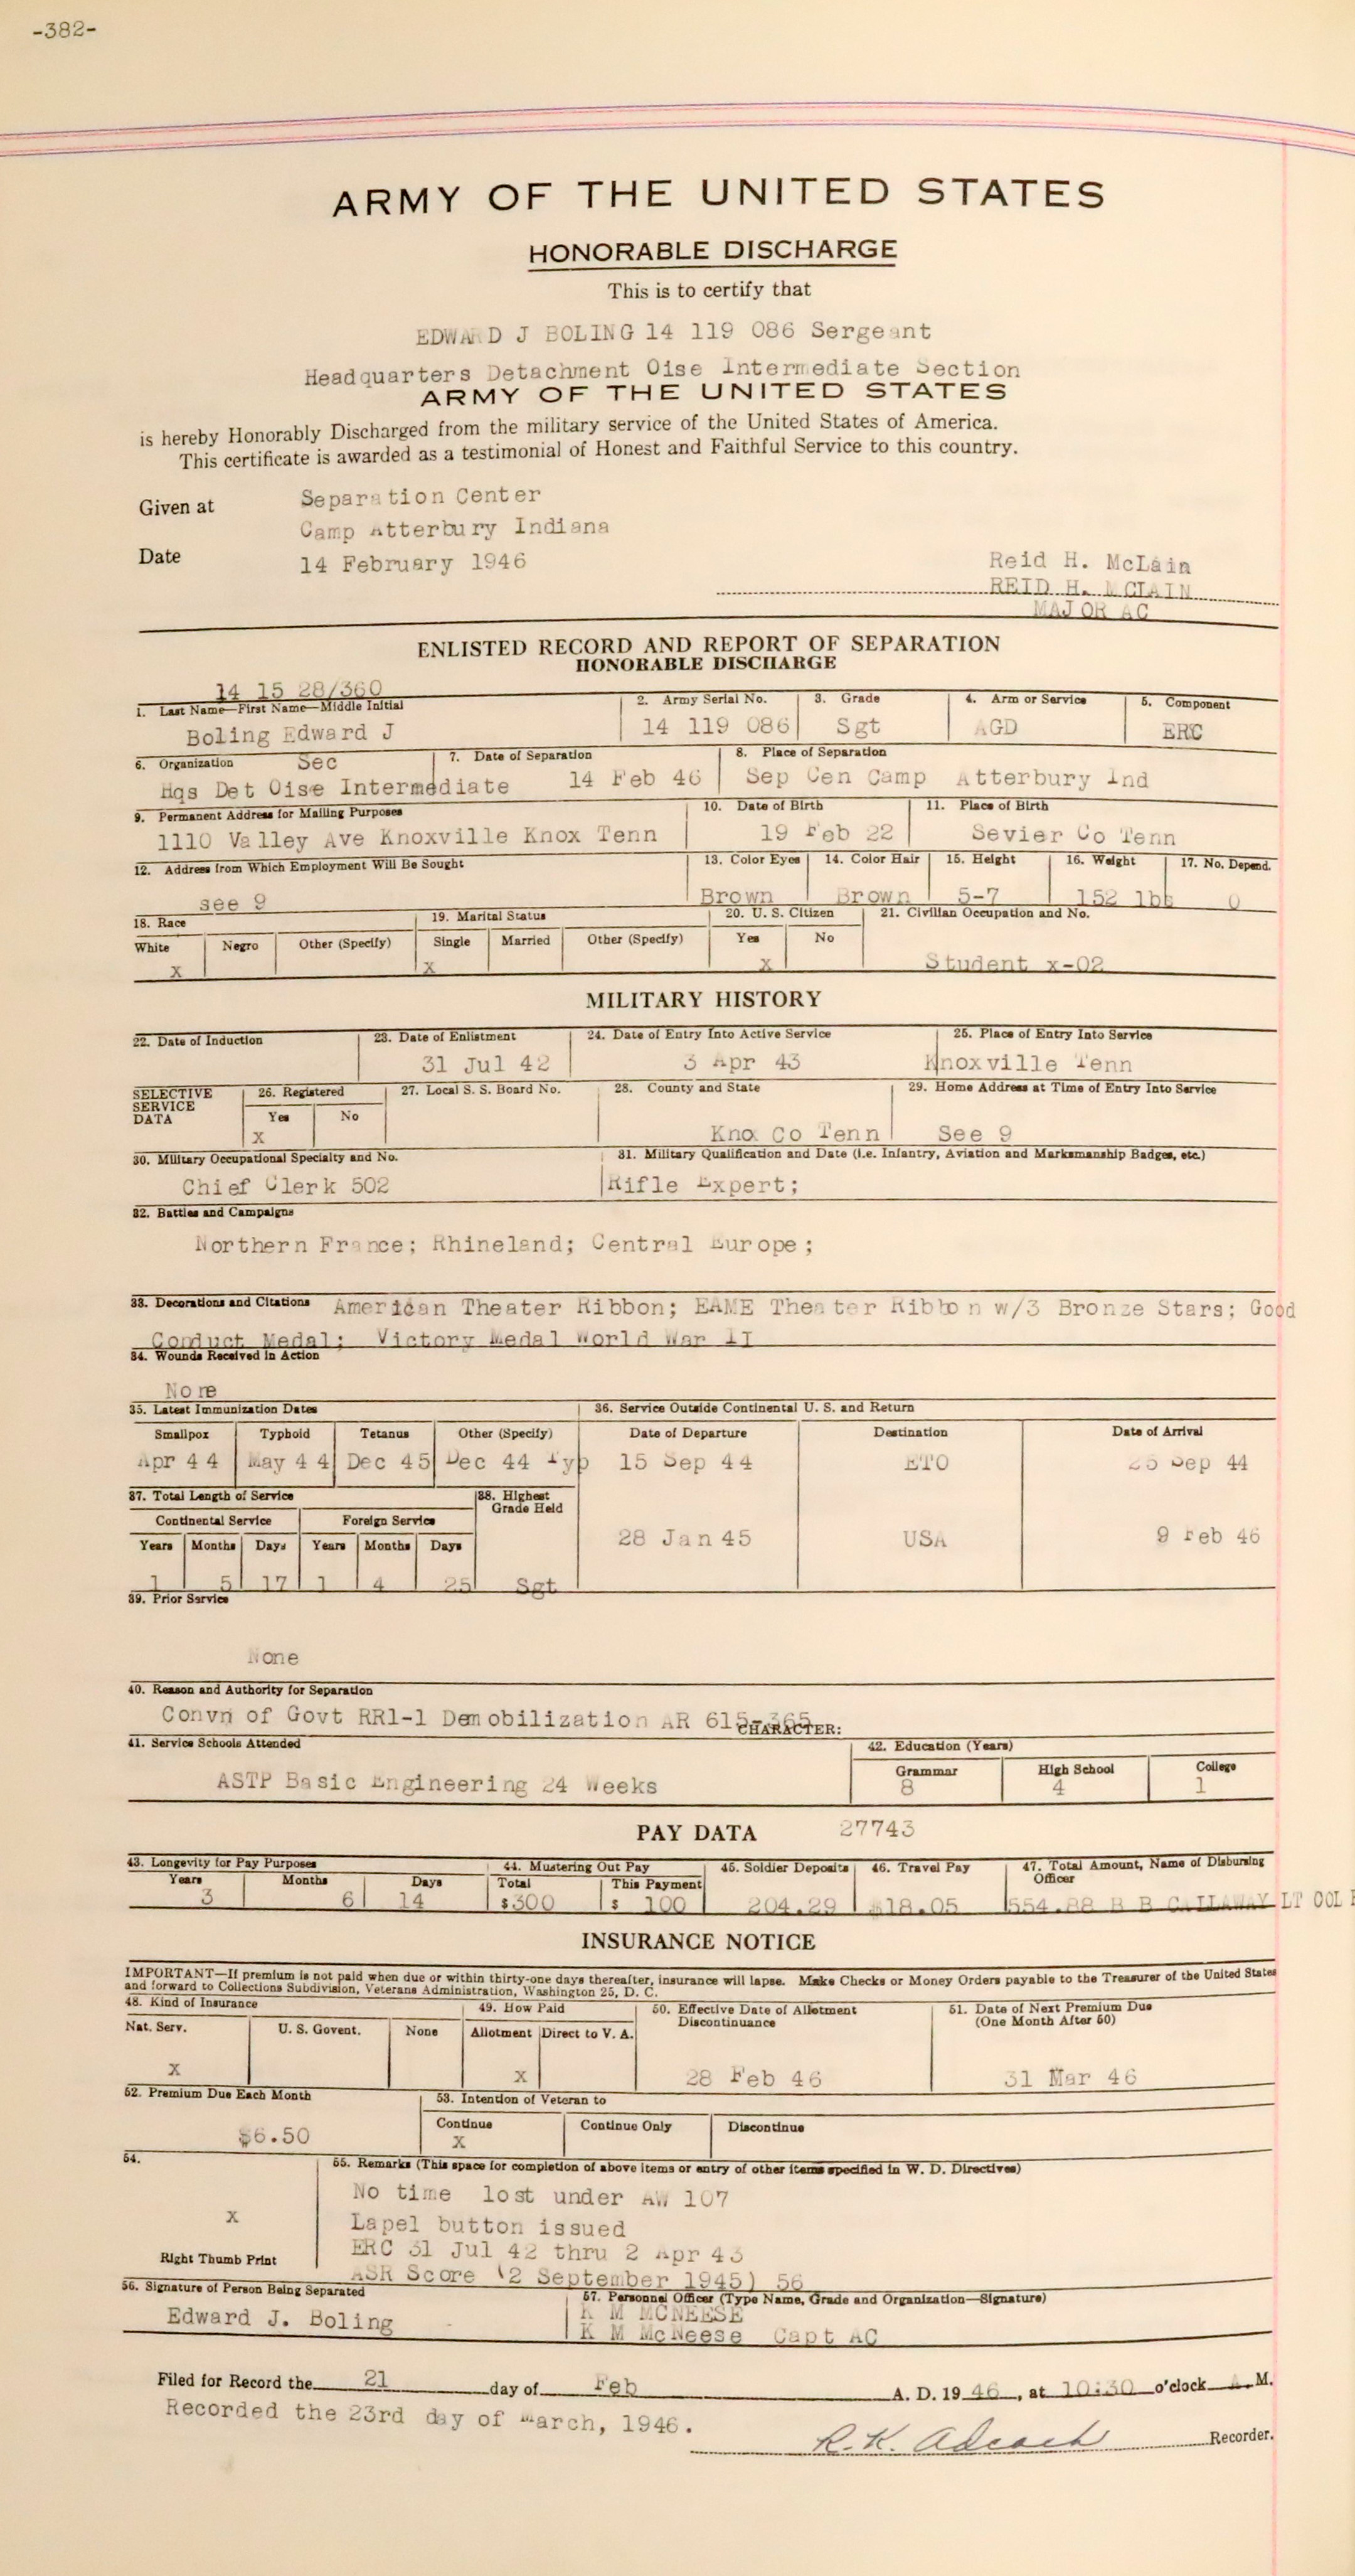 -382-
ARMY OF THE UNITED STATES
HONORABLE DISCHARGE
This is to certify that
EDWARD J BOLING 14 119 086 Sergeant
Headquarters Detachment Oise Intermediate Section
ARMY OF THE UNITED STATES
is hereby Honorably Discharged from the military service of the United States of America.
This certificate is awarded as a testimonial of Honest and Faithful Service to this country.
Given at Separation Center
Camp Atterbury Indiana
Date 14 February 1946
Reid H. McLain
REID H. MCLAIN
MAJOR AC
ENLISTED RECORD AND REPORT OF SEPARATION
HONORABLE DISCHARGE
14 15 28/360
1. Last Name—First Name—Middle Initial 2. Army Serial No. 3. Grade 4. Arm or Service 5. Component
Boling Edward J 14 119 086 Sgt AGD ERC
6. Organization Sec 7. Date of Separation 8. Place of Separation
Hqs Det Oise Intermediate 14 Feb 46 Sep Cen Camp Atterbury Ind
9. Permanent Address for Mailing Purposes 10. Date of Birth 11. Place of Birth
1110 Valley Ave Knoxville Knox Tenn 19 Feb 22 Sevier Co Tenn
12. Address from Which Employment Will Be Sought 13. Color Eyes 14. Color Hair 15. Height 16. Weight 17. No. Depend.
see 9 Brown Brown 5-7 152 lbs 0
18. Race 19. Marital Status 20. U. S. Citizen 21. Civilian Occupation and No.
White Negro Other (Specify) Single Married Other (Specify) Yes No
x x x Student x-02
MILITARY HISTORY
22. Date of Induction 23. Date of Enlistment 24. Date of Entry Into Active Service 25. Place of Entry Into Service
31 Jul 42 3 Apr 43 Knoxville Tenn
SELECTIVE SERVICE DATA 26. Registered 27. Local S. S. Board No. 28. County and State 29. Home Address at Time of Entry Into Service
Yes No
x Knox Co Tenn See 9
30. Military Occupational Specialty and No. 31. Military Qualification and Date (i.e. Infantry, Aviation and Marksmanship Badges, etc.)
Chief Clerk 502 Rifle Expert;
32. Battles and Campaigns
Northern France; Rhineland; Central Europe;
33. Decorations and Citations American Theater Ribbon; EAME Theater Ribbon w/3 Bronze Stars; Good
Conduct Medal; Victory Medal World War II
34. Wounds Received in Action
None
35. Latest Immunization Dates 36. Service Outside Continental U. S. and Return
Smallpox Typhoid Tetanus Other (Specify) Date of Departure Destination Date of Arrival
Apr 44 May 44 Dec 45 Dec 44 Typ 15 Sep 44 ETO 25 Sep 44
37. Total Length of Service 38. Highest Grade Held
Continental Service Foreign Service
28 Jan 45 USA 9 Feb 46
Years Months Days Years Months Days
1 5 17 1 4 25 Sgt
39. Prior Service
None
40. Reason and Authority for Separation
Convn of Govt RR1-1 Demobilization AR 615-365 CHARACTER:
41. Service Schools Attended 42. Education (Years)
Grammar High School College
ASTP Basic Engineering 24 Weeks 8 4 1
PAY DATA 27743
43. Longevity for Pay Purposes 44. Mustering Out Pay 45. Soldier Deposits 46. Travel Pay 47. Total Amount, Name of Disbursing Officer
Years Months Days Total This Payment
3 6 14 $300 $ 100 204.29 $18.05 554.88 B B CALLAWAY LT COL F
INSURANCE NOTICE
IMPORTANT—If premium is not paid when due or within thirty-one days thereafter, insurance will lapse. Make Checks or Money Orders payable to the Treasurer of the United States
and forward to Collections Subdivision, Veterans Administration, Washington 25, D. C.
48. Kind of Insurance 49. How Paid 50. Effective Date of Allotment Discontinuance 51. Date of Next Premium Due (One Month After 50)
Nat. Serv. U. S. Govent. None Allotment Direct to V. A.
x x 28 Feb 46 31 Mar 46
52. Premium Due Each Month 53. Intention of Veteran to
Continue Continue Only Discontinue
$6.50 x
54. 55. Remarks (This space for completion of above items or entry of other items specified in W. D. Directives)
No time lost under AW 107
x Lapel button issued
Right Thumb Print ERC 31 Jul 42 thru 2 Apr 43
ASR Score (2 September 1945) 56
56. Signature of Person Being Separated 57. Personnel Officer (Type Name, Grade and Organization—Signature)
K M MCNEESE
Edward J. Boling K M McNeese Capt AC
Filed for Record the 21 day of Feb A. D. 19 46, at 10:30 o'clock A. M.
Recorded the 23rd day of March, 1946.
R. K. Adcock Recorder.